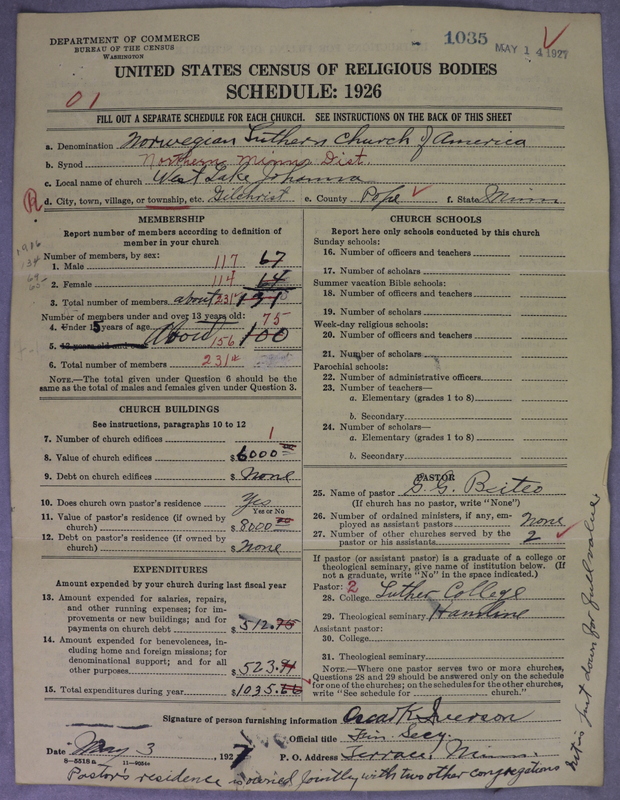 DEPARTMENT OF COMMERCE
BUREAU OF THE CENSUS
WASHINGTON
1035
MAY 14 1927
UNITED STATES CENSUS OF RELIGIOUS BODIES
SCHEDULE: 1926
01
FILL OUT A SEPARATE SCHEDULE FOR EACH CHURCH. SEE INSTRUCTIONS ON THE BACK OF THIS SHEET
a. Denomination Norwegian Luthern Church of America
b. Synod Northern Minn. Dist.
c. Local name of church West Lake Johanna
d. City, town, village, or township, etc. Gilchrist e. County Pope f. State Minn
MEMBERSHIP
Report number of members according to definition of member in your church
Number of members, by sex:
1. Male 117 67
2. Female 114 64
3. Total number of members about 231 131
Number of members under and over 13 years old:
4. Under 15 years of age 75
5. 13 years old and over About 156 100
6. Total number of members 231
NOTE.—The total given under Question 6 should be the same as the total of males and females given under Question 3.
CHURCH BUILDINGS
See instructions, paragraphs 10 to 12
7. Number of church edifices 1
8. Value of church edifices $ 6000
9. Debt on church edifices $ None
10. Does church own pastor's residence Yes
Yes or No
11. Value of pastor's residence (if owned by church) $ 8000
12. Debt on pastor's residence (if owned by church) $ None
EXPENDITURES
Amount expended by your church during last fiscal year
13. Amount expended for salaries, repairs, and other running expenses; for improvements or new buildings; and for payments on church debt $ 512.75
14. Amount expended for benevolences, including home and foreign missions; for denominational support; and for all other purposes $ 523.91
15. Total expenditures during year $ 1035.66
CHURCH SCHOOLS
Report here only schools conducted by this church
Sunday schools:
16. Number of officers and teachers
17. Number of scholars
Summer vacation Bible schools:
18. Number of officers and teachers
19. Number of scholars
Week-day religious schools:
20. Number of officers and teachers
21. Number of scholars
Parochial schools:
22. Number of administrative officers
23. Number of teachers—
a. Elementary (grades 1 to 8)
b. Secondary
24. Number of scholars—
a. Elementary (grades 1 to 8)
b. Secondary
PASTOR
25. Name of pastor O. G. Beito
(If church has no pastor, write "None")
26. Number of ordained ministers, if any, employed as assistant pastors None
27. Number of other churches served by the pastor or his assistants 2
If pastor (or assistant pastor) is a graduate of a college or theological seminary, give name of institution below. (If not a graduate, write "No" in the space indicated.)
Pastor: 2
28. College Luther College
29. Theological seminary Hamline
Assistant pastor:
30. College
31. Theological seminary
NOTE.—Where one pastor serves two or more churches, Questions 28 and 29 should be answered only on the schedule for one of the churches; on the schedules for the other churches, write "See schedule for church."
Signature of person furnishing information Oscar K. Iverson
Official title Fin. Secy.
Date May 3, 1927 P. O. Address Terrace, Minn.
8—5518 a
Pastor's residence is owned jointly with two other congregations
but is put down for full value.